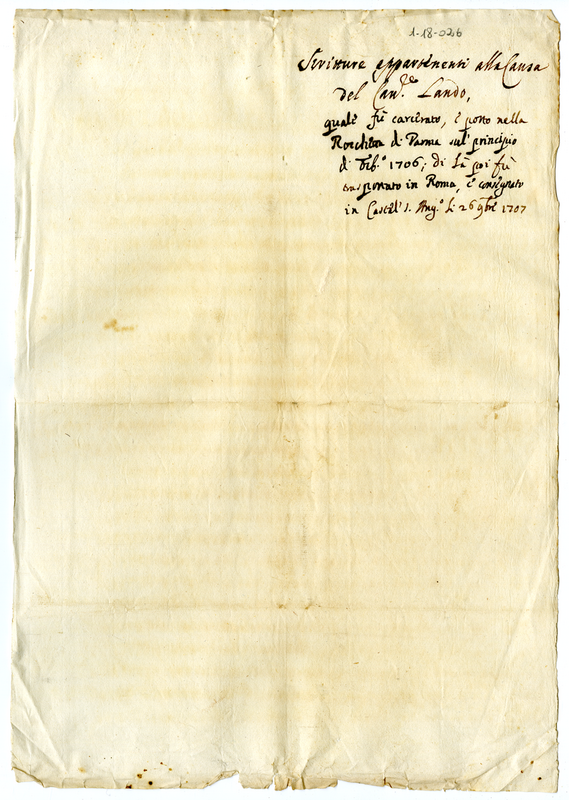 1-18-026
Scritture appartenenti alla Causa
del Cav.re Lando,
quale fù carcerato, e posto nella
Rocchetta di Parma sul principio
di Feb.o 1706; di là poi fù
trasportato in Roma, e consegnato
in Castel S. Ang.o li 26 9bre 1707